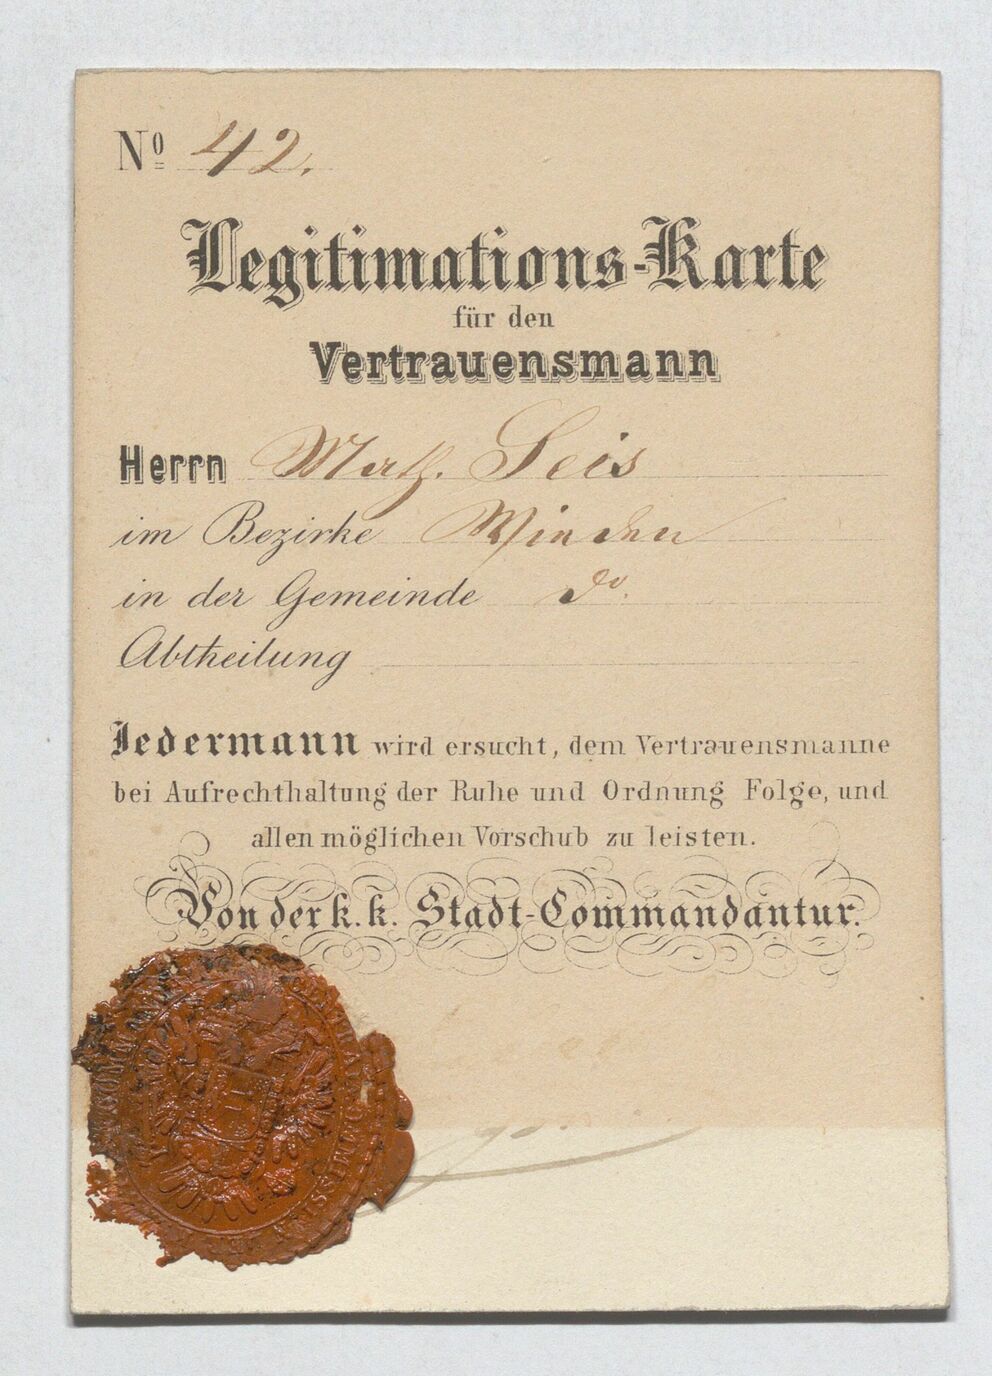 No 42.
Legitimations-Karte
für den
Vertrauensmann
Herrn Math. Seis
im Bezirke Wieden
in der Gemeinde do.
Abtheilung
Jedermann wird ersucht, dem Vertrauensmanne
bei Aufrechthaltung der Ruhe und Ordnung Folge, und
allen möglichen Vorschub zu leisten.
Von der k. k. Stadt-Commandantur.